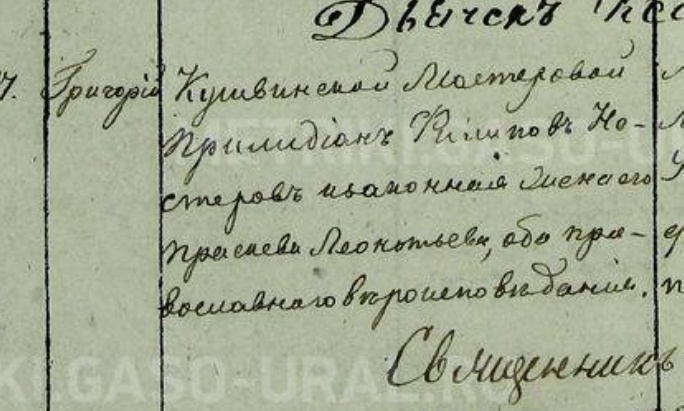 Дьячекъ
7. Григорій Кушвинской Мастеровой
Филипповъ Но-
стеровъ изаконная жена его
Прасковья Леонтьева, оба пра-
вославнаго вѣроисповѣданія.
Священникъ